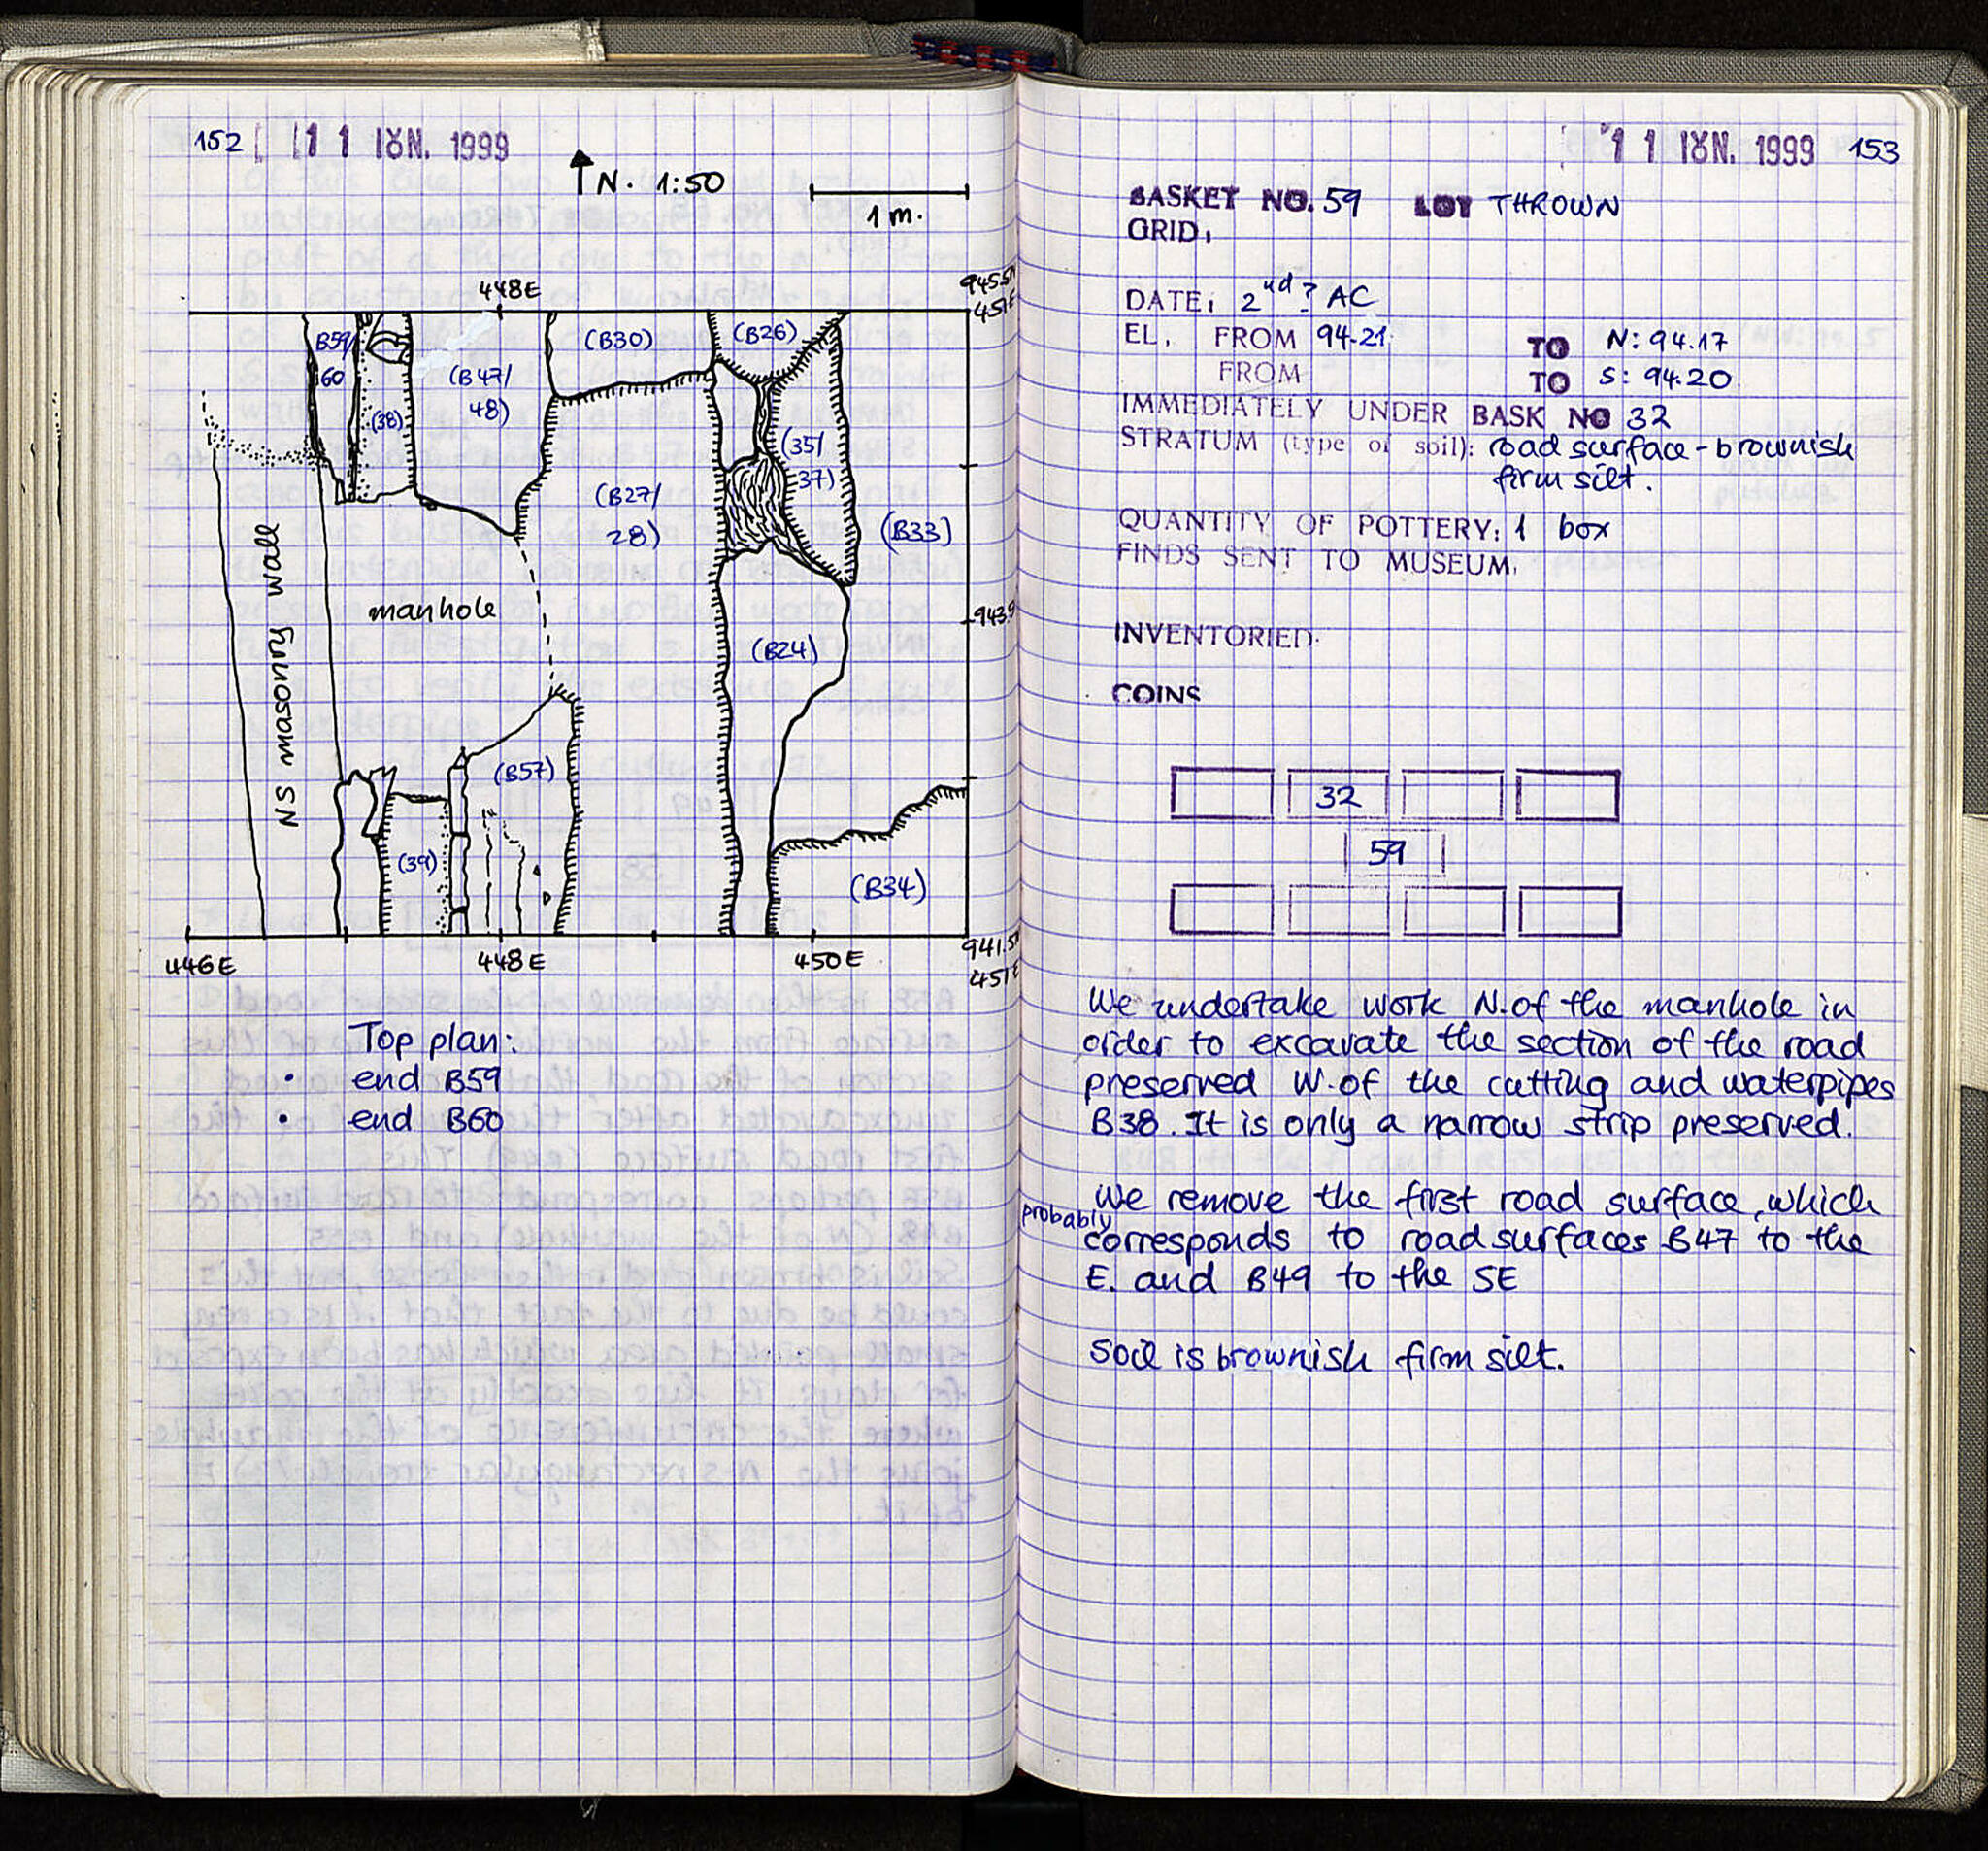 152 11 ΙΟΥΝ. 1999
N. 1:50
1 m.
448E
945.5
451E
B59/
60
(38)
(B47/
48)
(B30)
(B26)
(35/
37)
(B27/
28)
(B33)
NS masonry wall
manhole
943.5
(B24)
(B57)
(39)
(B34)
446E
448E
450E
941.5
451E
Top plan:
• end B59
• end B60
11 ΙΟΥΝ. 1999 153
BASKET NO. 59 LOT THROWN
GRID:
DATE: 2nd? AC
EL. FROM 94.21 TO N: 94.17
FROM TO S: 94.20
IMMEDIATELY UNDER BASK NO 32
STRATUM (type of soil): road surface - brownish
firm silt.
QUANTITY OF POTTERY: 1 box
FINDS SENT TO MUSEUM:
INVENTORIED:
COINS
32
59
We undertake work N. of the manhole in
order to excavate the section of the road
preserved W. of the cutting and waterpipes
B38. It is only a narrow strip preserved.
We remove the first road surface, which
probably corresponds to road surfaces B47 to the
E. and B49 to the SE
Soil is brownish firm silt.